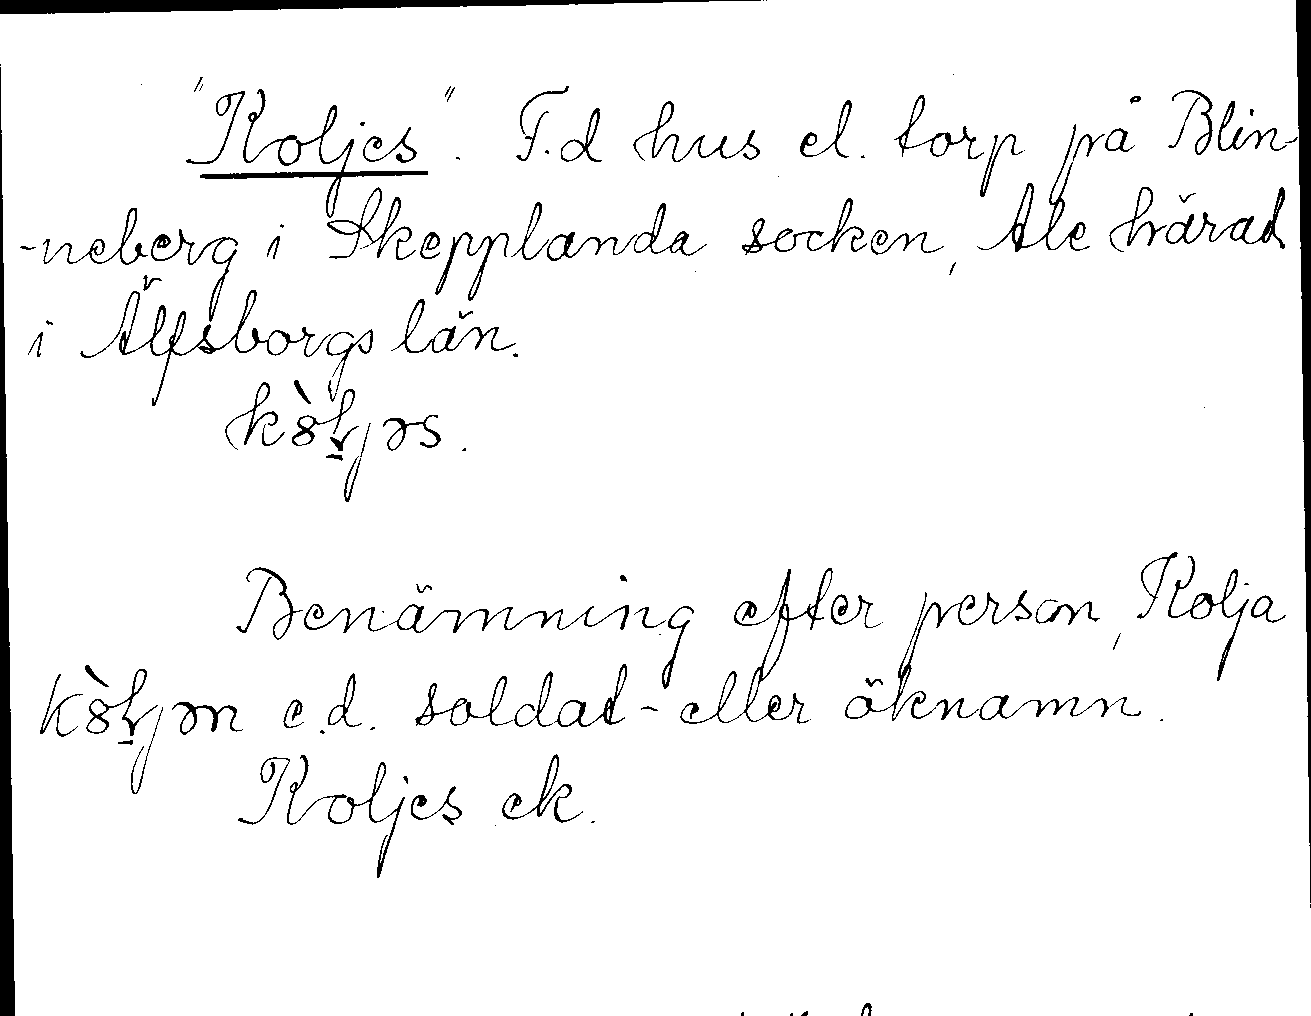 "Koljes". F.d hus el. torp på Blin-
-neberg i Skepplanda socken, Ale härad
i Älfsborgs län.
Benämning efter person, Kolja
e.d. soldat- eller öknamn.
Koljes ek.